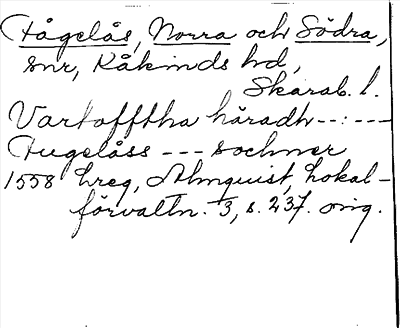 Fågelås, Norra och Södra,
snr, Kåkinds hd,
Skarab. l.
Vartofftha häradh --:---
Fugelåss --- sochner
1558 hreg, Almquist, Lokal-
förvaltn. 3, s. 237. orig.